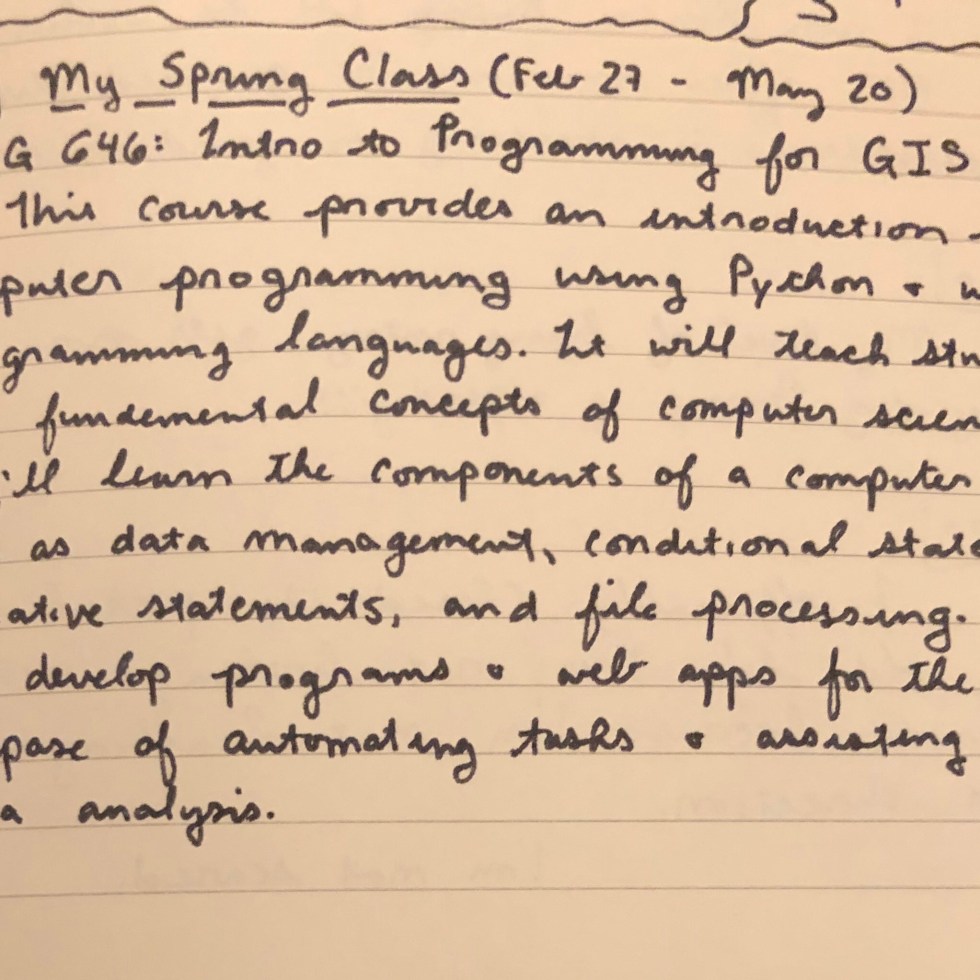 My Spring Class (Feb 27 - May 20)
G 646: Intro to Programming for GIS
This course provides an introduction
puter programming using Python & w
gramming languages. It will teach stu
fundemental concepts of computer scien
ill learn the components of a computer
as data management, conditional state
ative statements, and file processing.
develop programs & web apps for the
pose of automating tasks & assisting
a analysis.